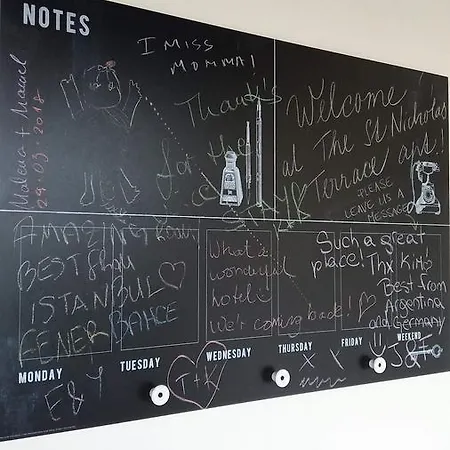 NOTES
I MISS
MOMMA!
Thank's
for the
STAY!
29.03.2018
Welcome
at The St Nicholas
Terrace apt!
PLEASE
LEAVE US A
MESSAGE
AMAZING
BEST
ISTANBUL ♡
FENER BAHCE
What a
wonderful
hotel
We'r coming back! ♡
Such a great
place!
Thx Kim
Best from
Argentina
and Germany
J&F
MONDAY
TUESDAY
WEDNESDAY
THURSDAY
FRIDAY
WEEKEND
E & Y
T+K
X X